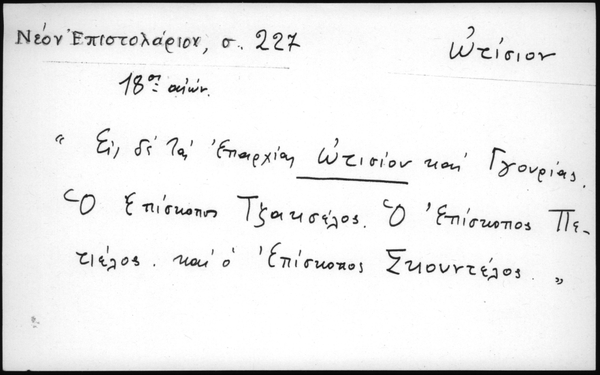 Νέον Ἐπιστολάριον, σ. 227
Ὠτίσιον
18ος αἰών.
" Εἰς δέ Τάς ἐπαρχίας Ὠτισίον καί Γγουρίας.
Ὁ Ἐπίσκοπος Τζακσέλος. Ὁ Ἐπίσκοπος Πε-
τιέλος. καί ὁ Ἐπίσκοπος Σκουντέλος. "